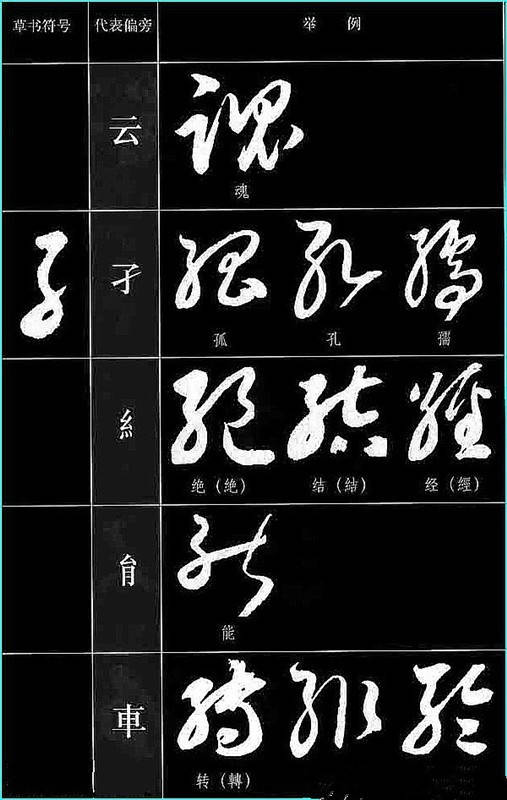 草书符号 代表偏旁 举例
云
魂
孑
孤 孔 孺
糹
绝（絶） 结（結） 经（經）
能
車
转（轉）